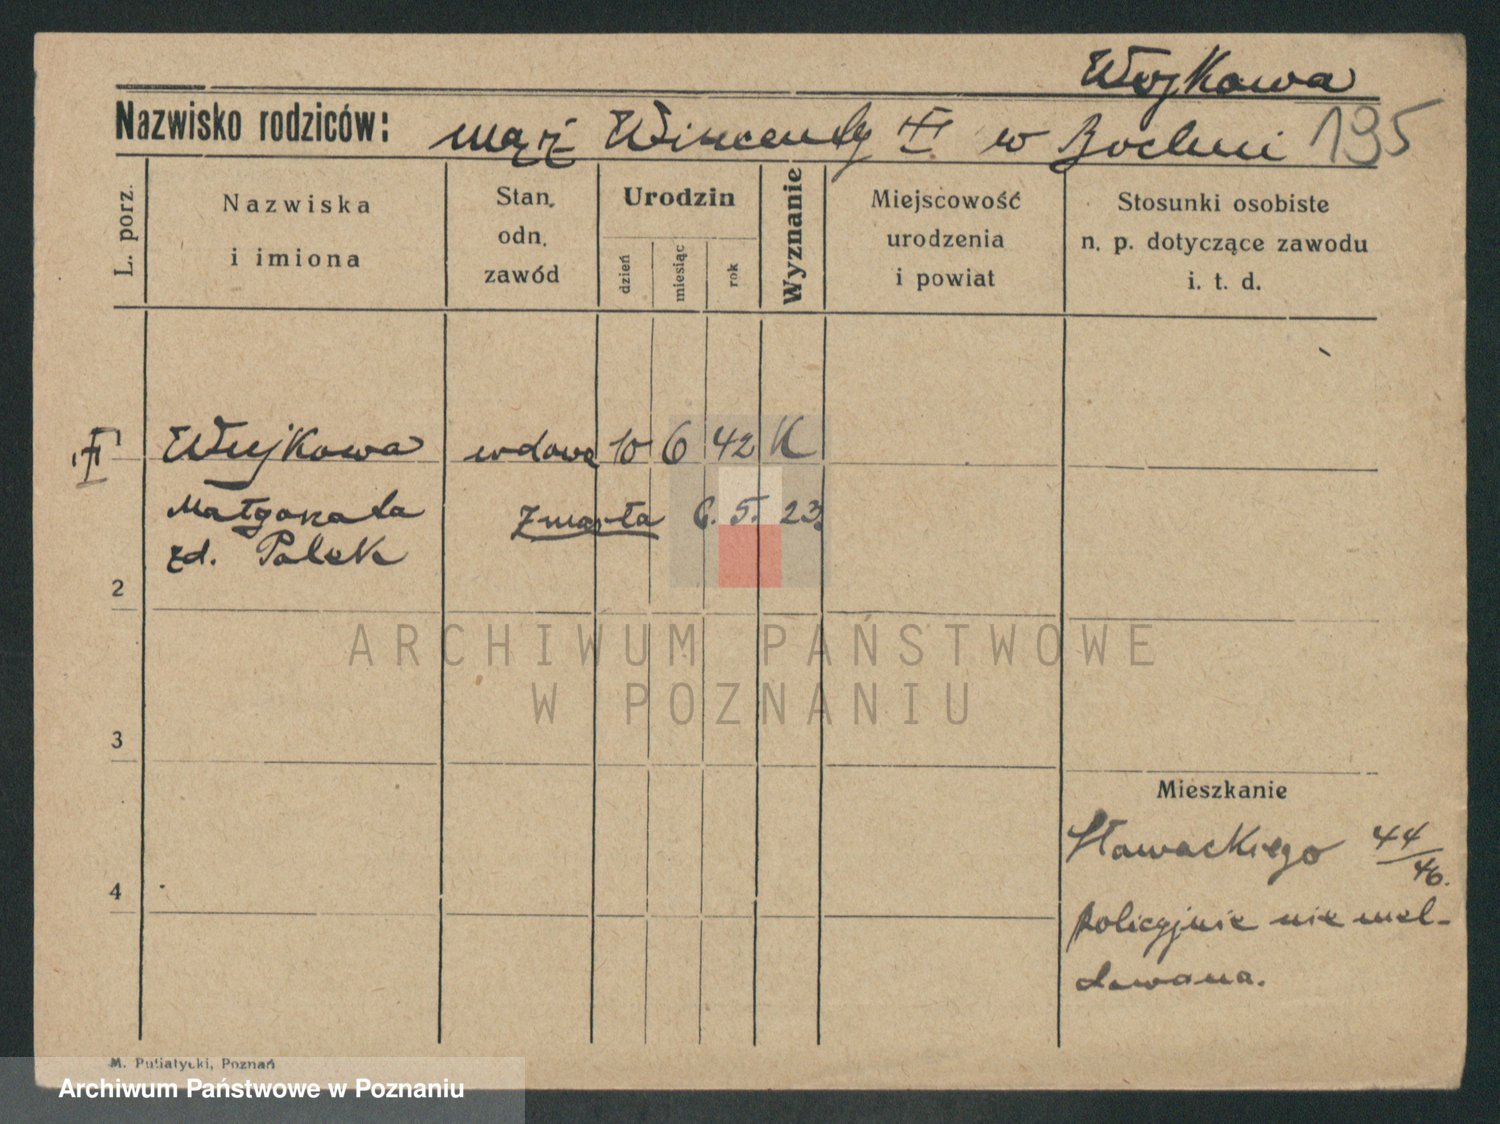 Wojkowa
Nazwisko rodziców: mąż Wincenty w Bochni 195
L. porz.
Nazwiska
i imiona
Stan.
odn.
zawód
Urodzin
dzień
miesiąc
rok
Wyznanie
Miejscowość
urodzenia
i powiat
Stosunki osobiste
n. p. dotyczące zawodu
i. t. d.
Wujkowa wdowa 10 6 42 K
Małgorzata zmarła 6. 5. 23.
zd. Polek
2
3
4
Mieszkanie
Słowackiego 44/46.
policyjnie nie mel-
dowana.
M. Putiatycki, Poznań
ARCHIWUM PAŃSTWOWE
W POZNANIU
Archiwum Państwowe w Poznaniu